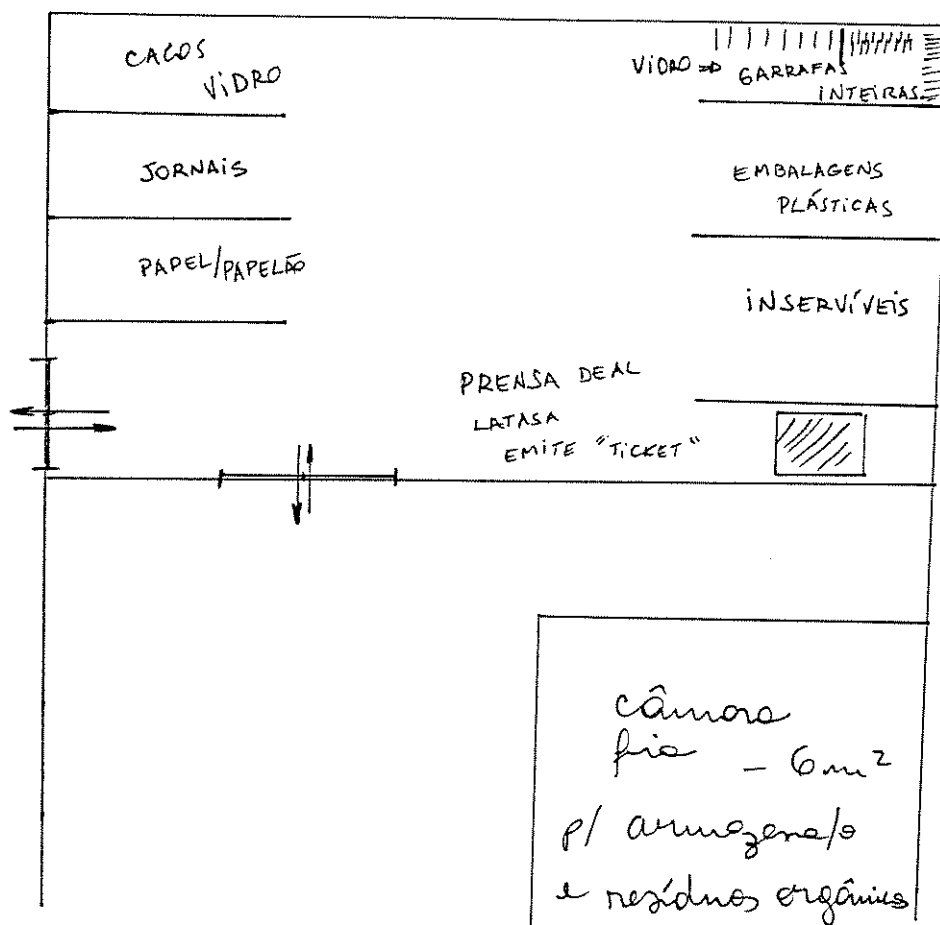 CACOS
VIDRO
JORNAIS
PAPEL/PAPELÃO
VIDRO => GARRAFAS
INTEIRAS
EMBALAGENS
PLÁSTICAS
INSERVÍVEIS
PRENSA DE AL
LATASA
EMITE "TICKET"
câmara
fria - 6m²
p/ armazena/o
e resíduos orgânicos